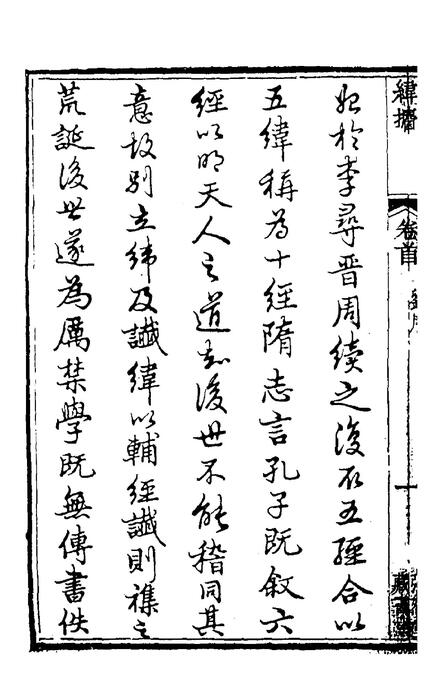 緯攟
卷首
始於李尋晉周續之復取五經合以
五緯稱為十經隋志言孔子既敘六
經以明天人之道知後世不能稽同其
意故別立緯及讖緯以輔經讖則襍之
荒誕後世遂為厲禁學既無傳書佚